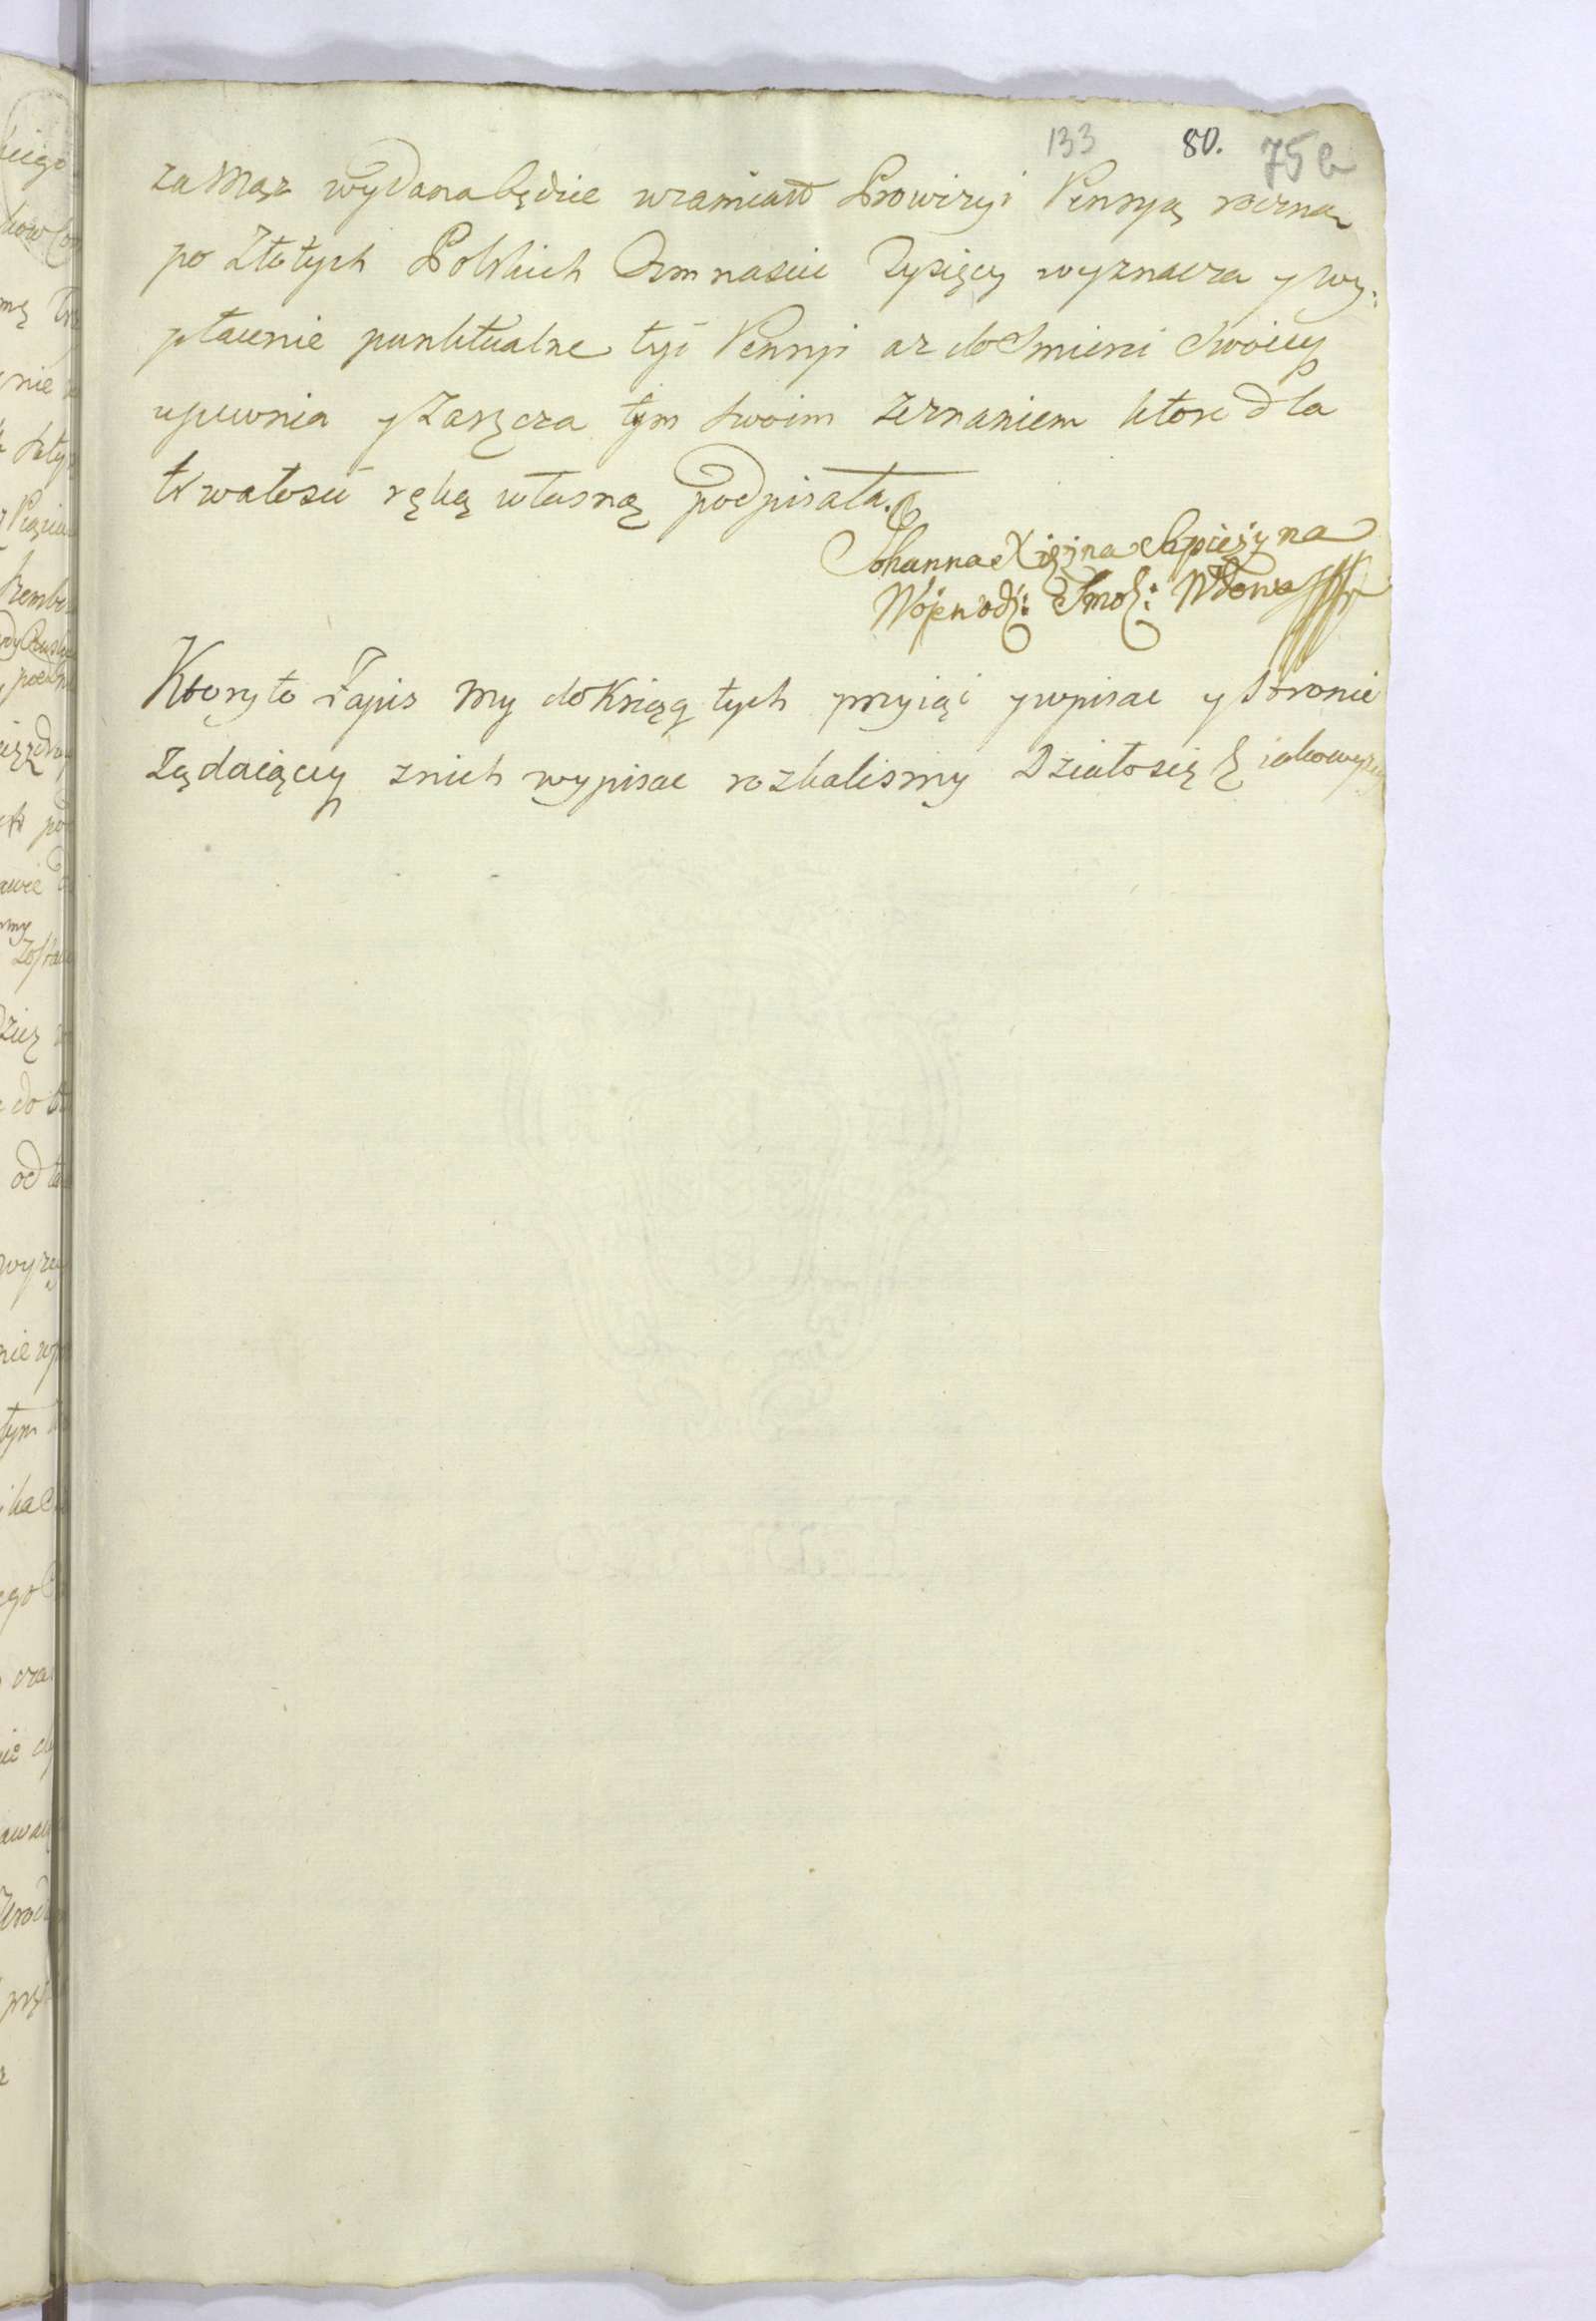 133 80. 75 b
za Mąz wydana będzie wzamian Prowizyi Pensyą roczną
po Złotych Polskich Osmnascie Tysięcy wyznacza y wy:
płacenie punktualne tyi Pensyi az do Smierci Swoiey
upewnia y Zaręcza tym Swoim Zeznaniem ktore dla
trwałosci ręką własną podpisała.
Johanna Xiężna Sapieżyna
Wojewodz: Smol: Wdowa
Ktory to Zapis My do Ksiąg tych przyiąć y wpisac y Stronie
Ządaiącey z nich wypisac rozkalismy Działo się iako wyżey